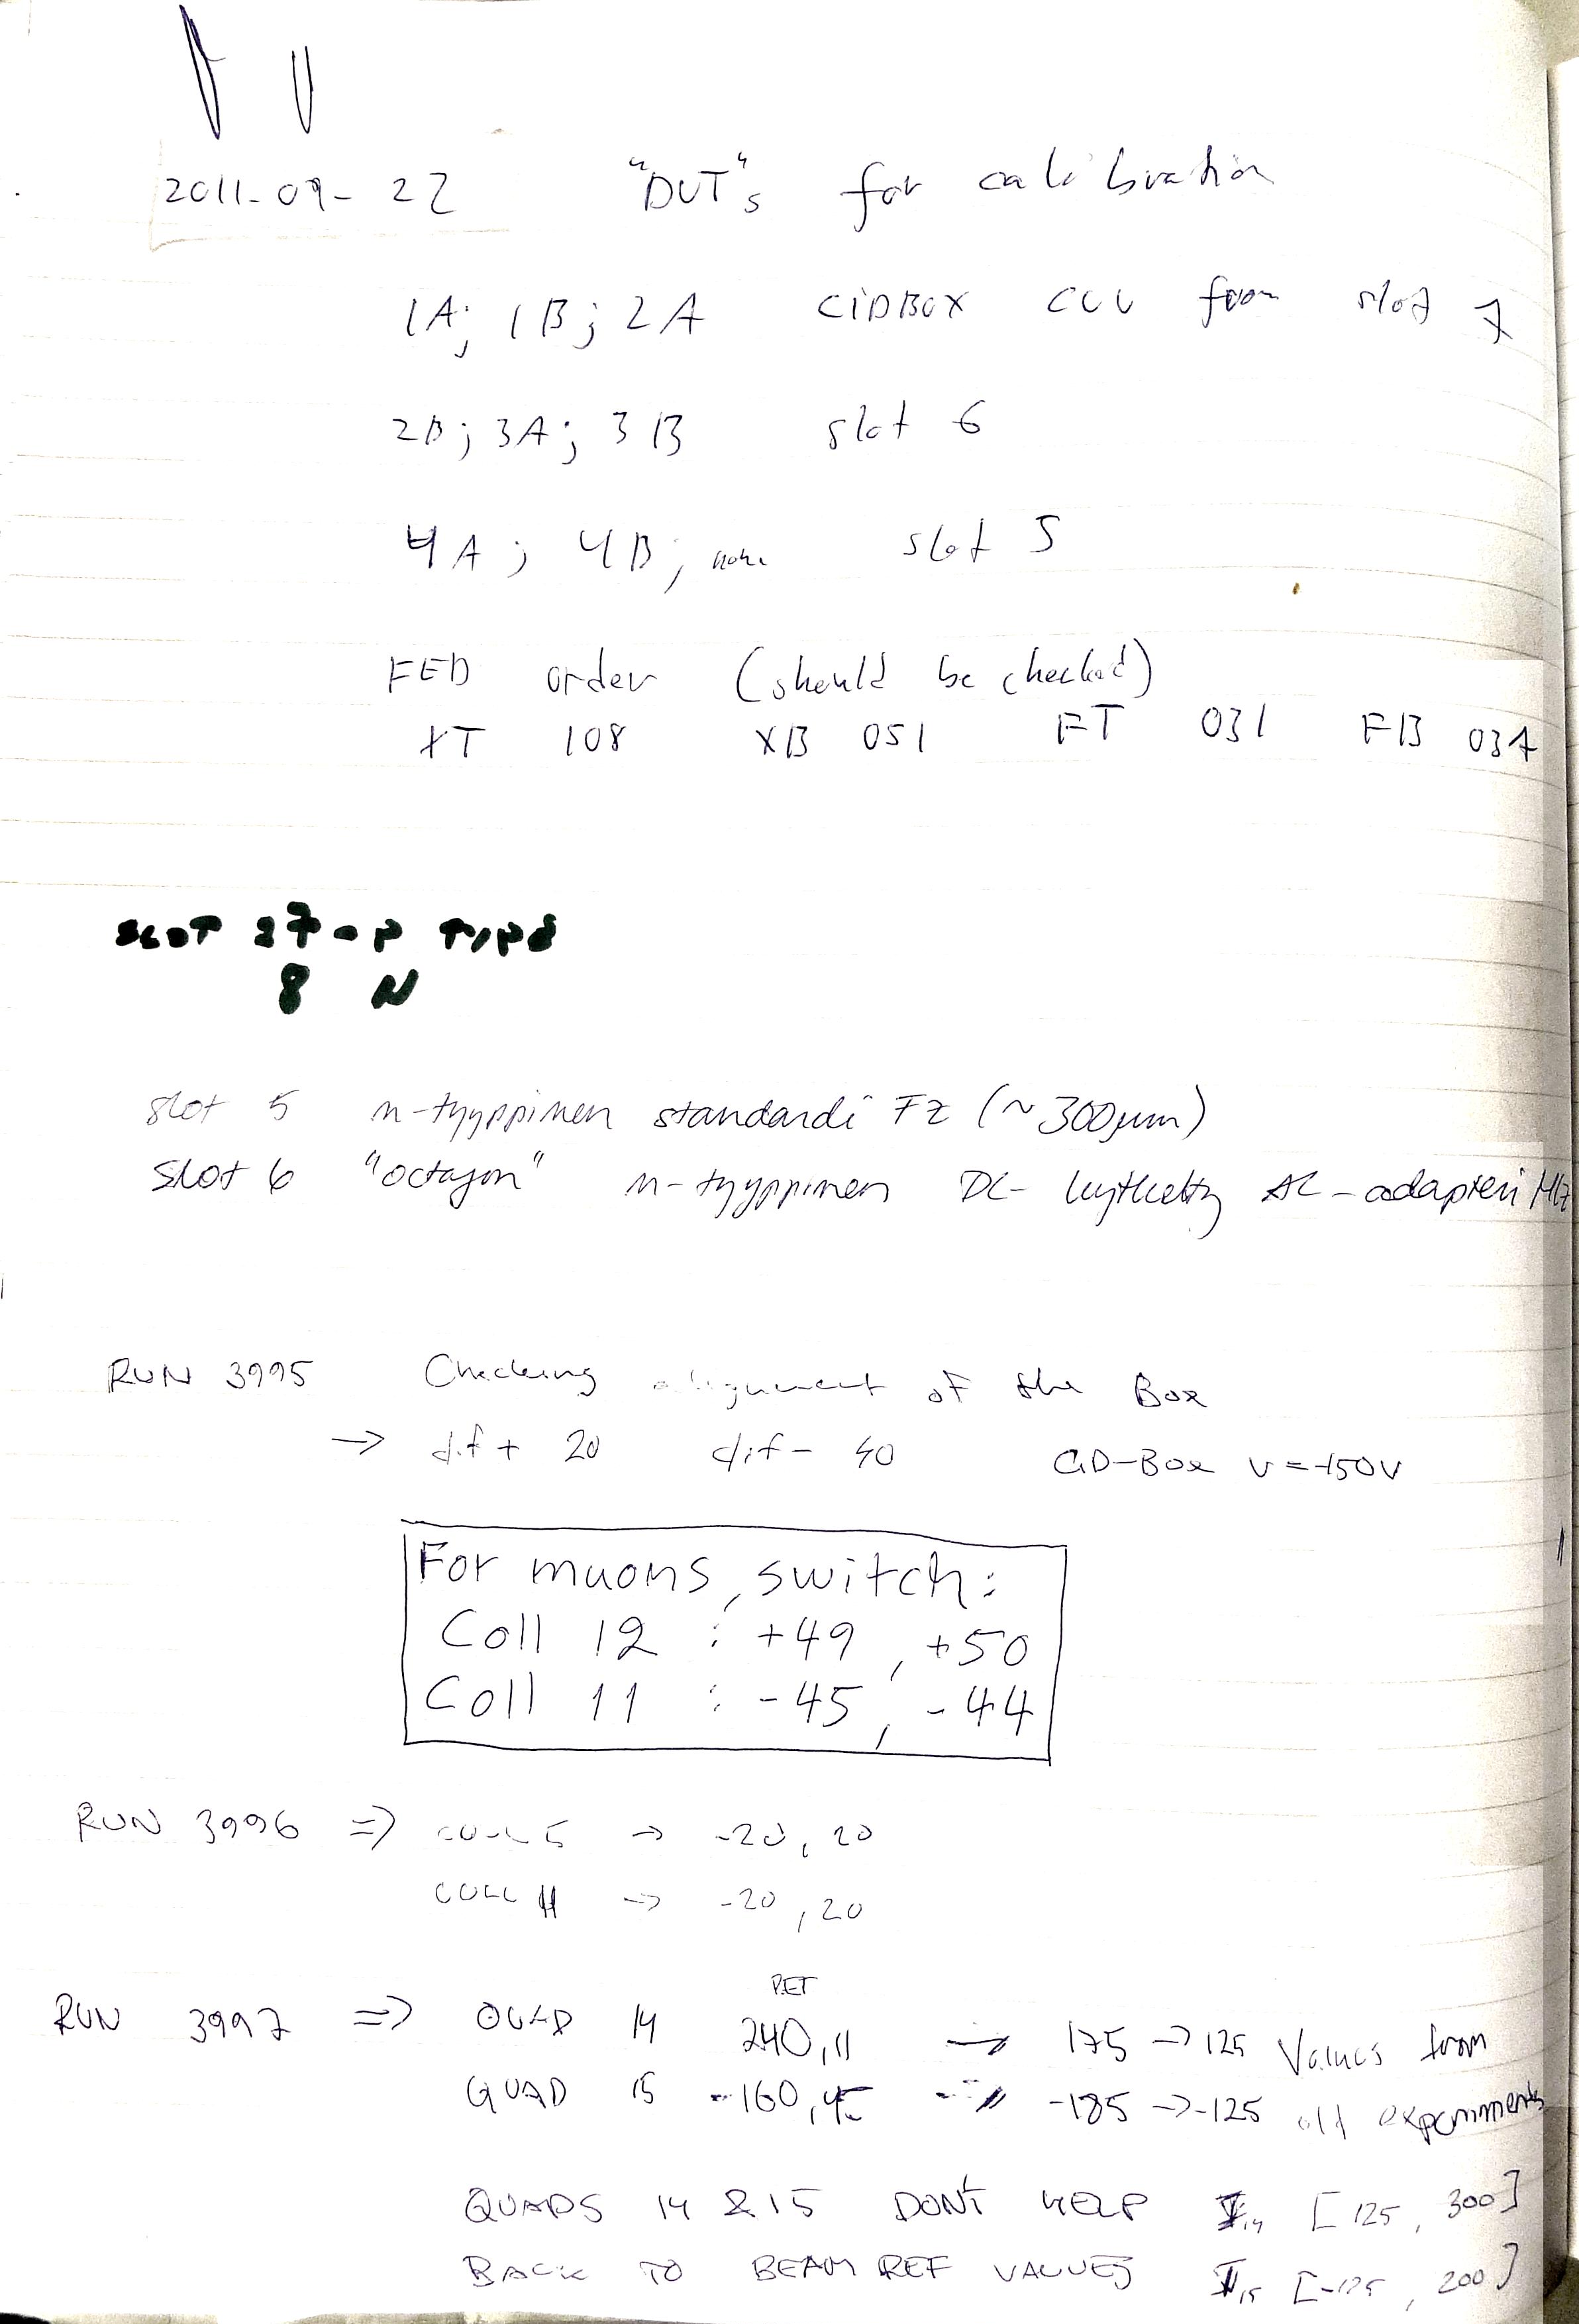 2011-09-22 "DUT"s for calibration
1A; 1B; 2A CIDBOX CCU from slot 7
2B; 3A; 3B slot 6
4A; 4B; none slot 5
FED order (should be checked)
XT 108 XB 051 FT 031 FB 037
SLOT 27-P TYPE
8 N
slot 5 n-tyyppinen standardi FZ (~300µm)
Slot 6 "octagon" n-tyyppinen DC- kytketty AC-adapteri MCz
RUN 3995 Checking alignment of the Box
→ dif + 20 dif - 40 CID-Box V=-150V
For muons, switch:
Coll 12 : +49, +50
Coll 11 : -45, -44
RUN 3996 => COLL 5 → -20, 20
COLL 11 → -20, 20
REF
RUN 3997 => QUAD 14 240,11 → 175 → 125 Values from
QUAD 15 -160,45 → -185 → -125 old experiments
QUADS 14 & 15 DON'T HELP I14 [125, 300]
BACK TO BEAM REF VALUES I15 [-125, 200]